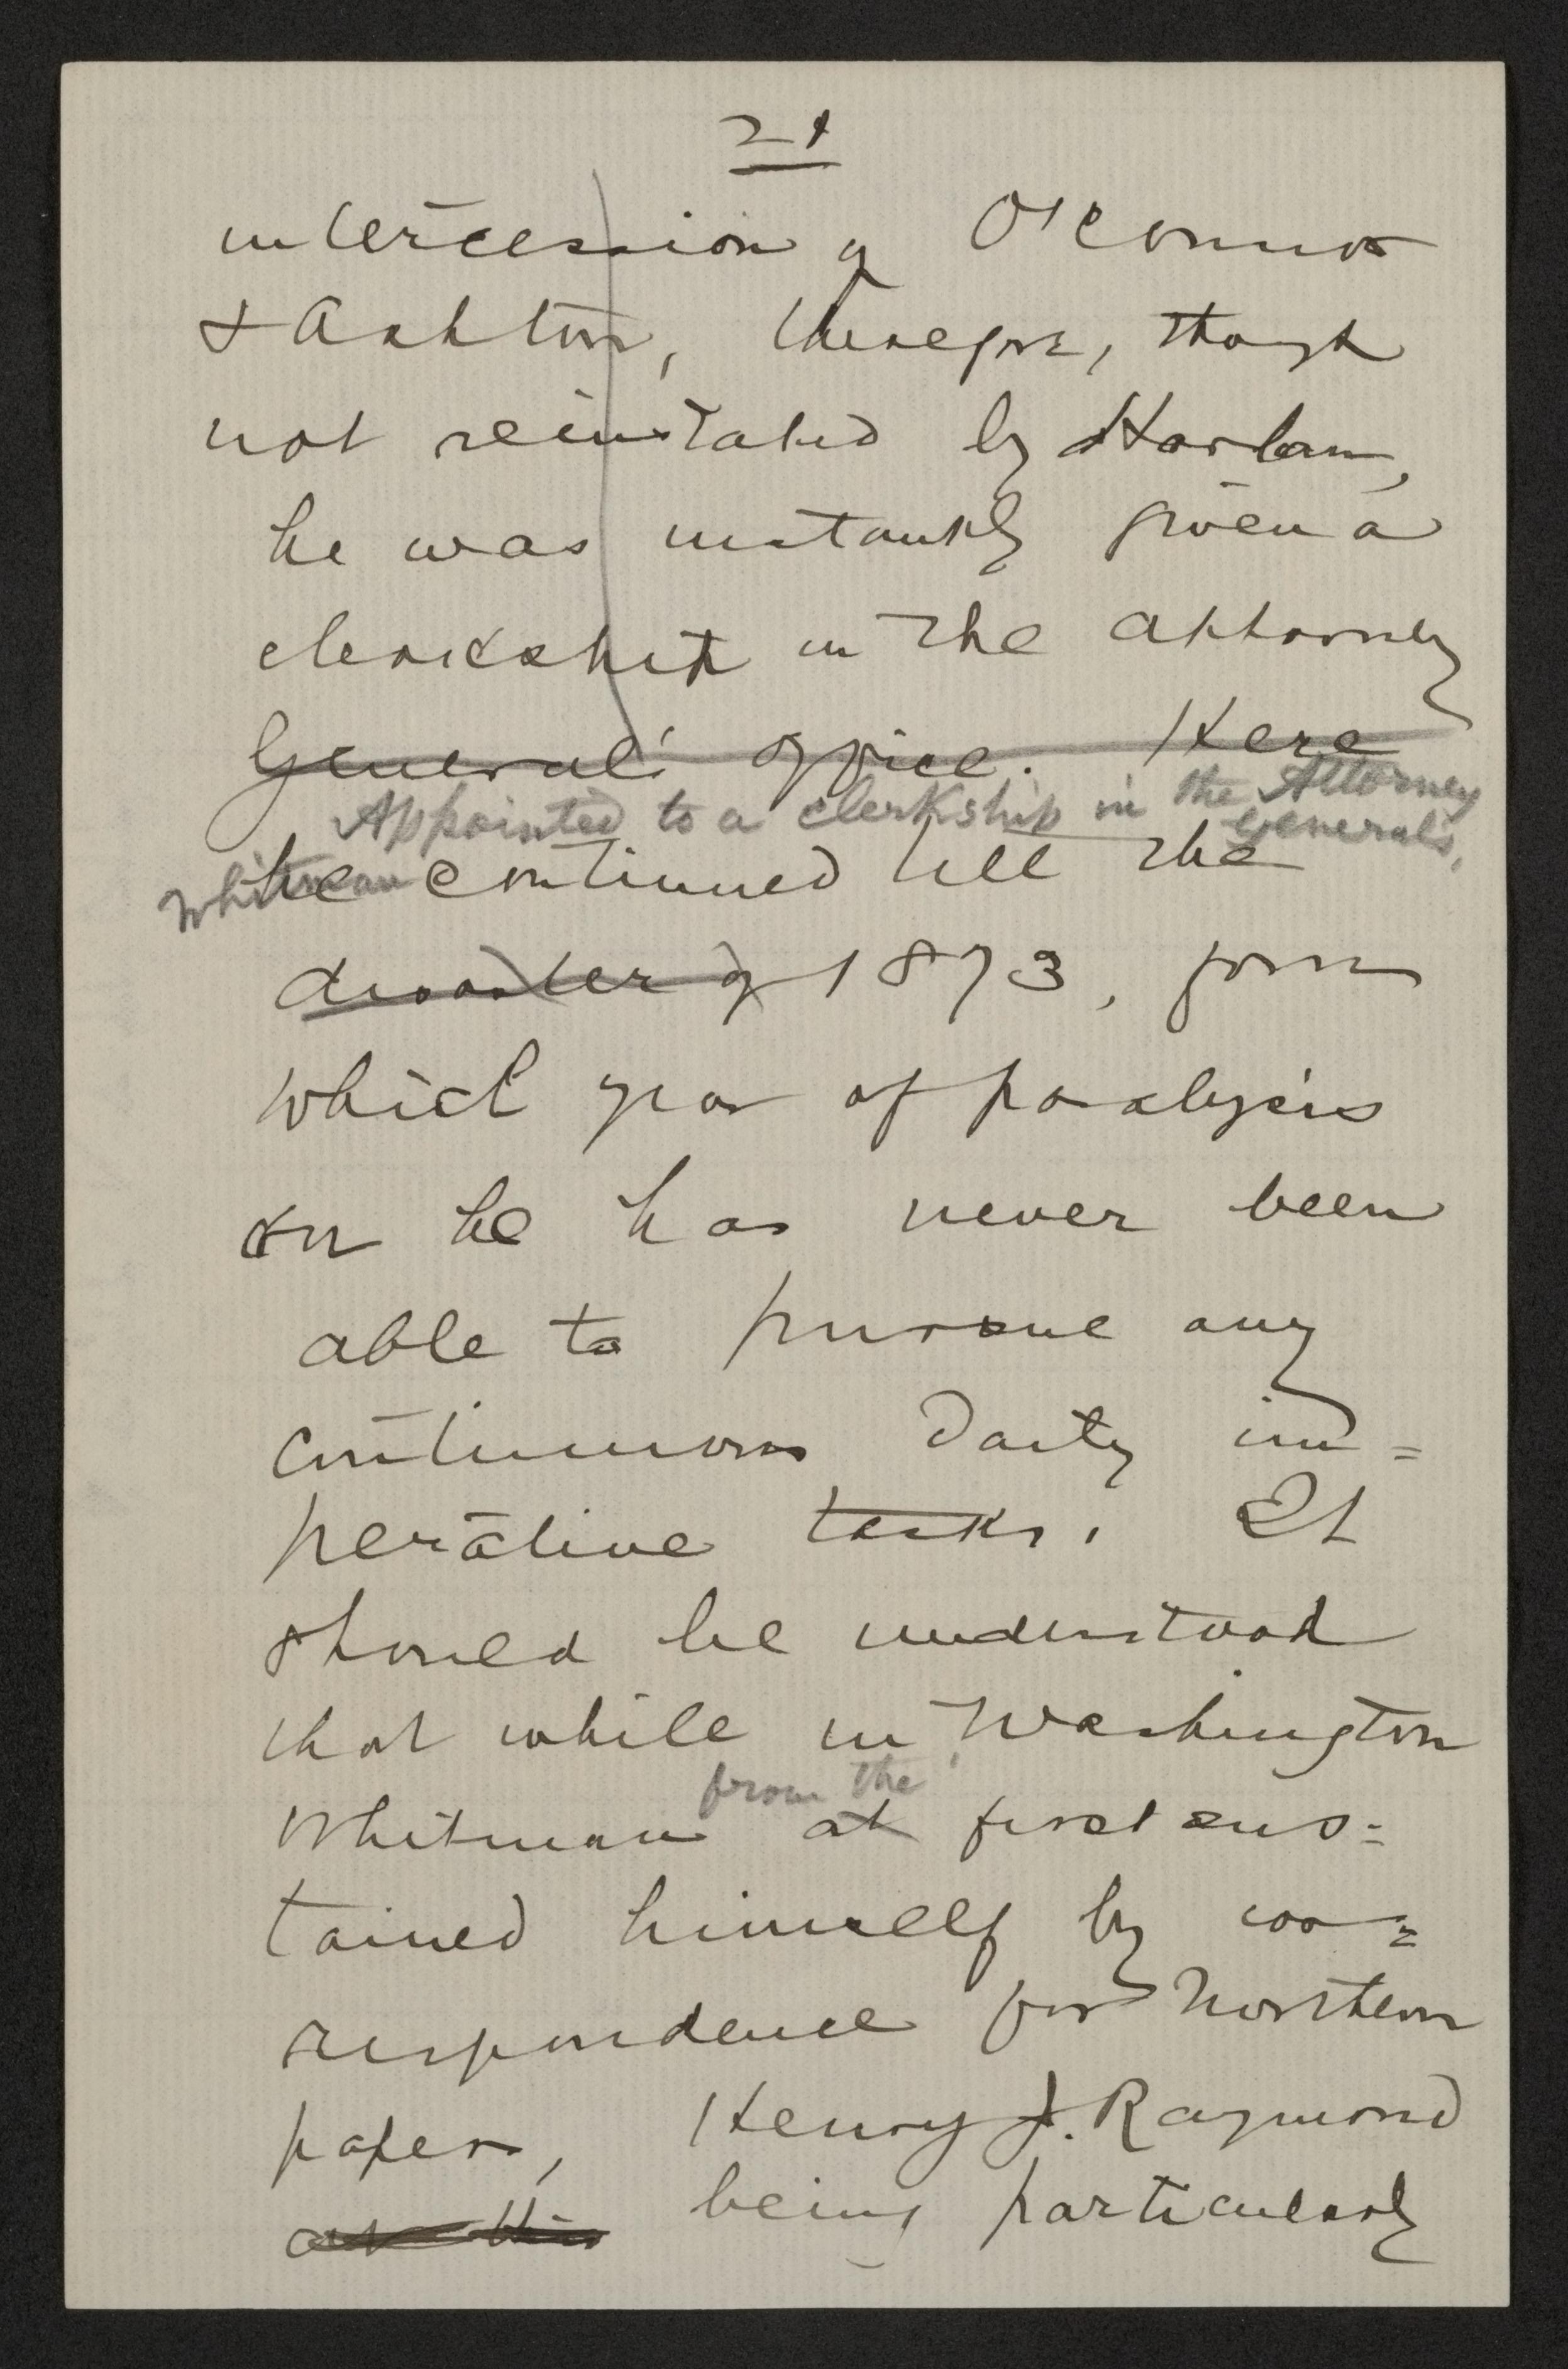 21
intercession of O'Connor
& Ashton, therefore, though
not reinstated by Harlan,
he was instantly given a
clerkship in the Attorney
General's office. Here
Appointed to a clerkship in the Attorney
Generals,
Whitman he continued till the
disaster of 1873, from
which year of paralysis
on he has never been
able to pursue any
continuous daily im=
perative tasks. It
should be understood
that while in Washington
from the
Whitman at first sus=
tained himself by cor=
respondence for Northern
papers, Henry J. Raymond
as this being particularly